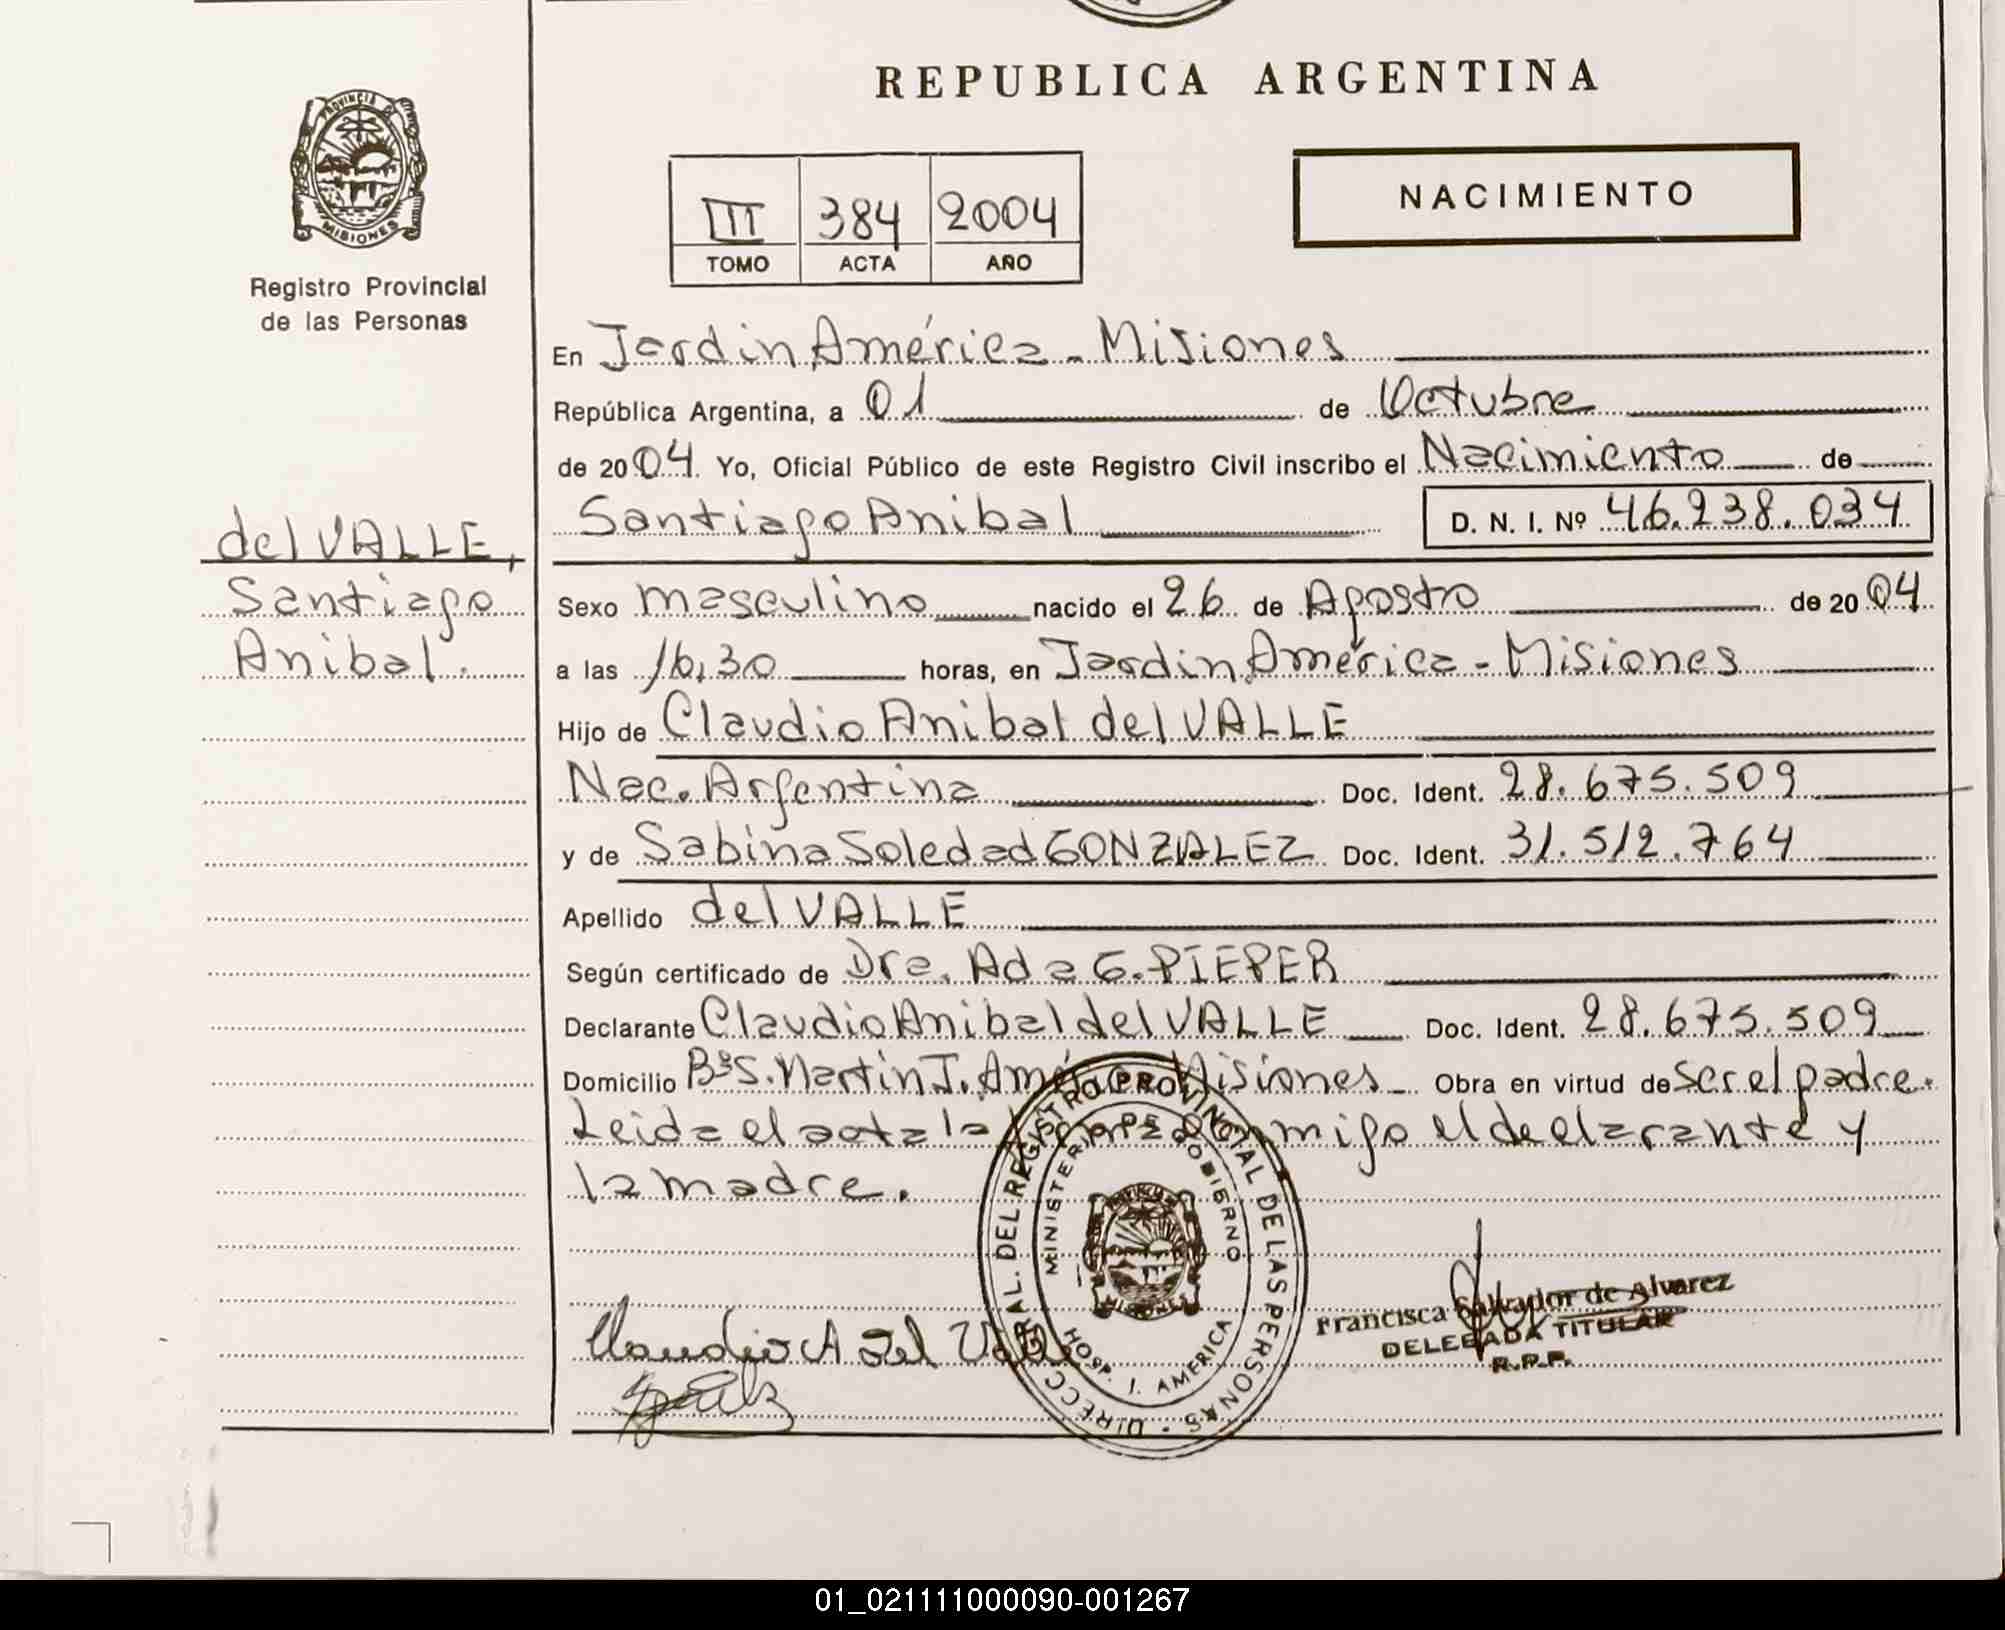 PROVINCIA DE
MISIONES
Registro Provincial
de las Personas
del VALLE,
Santiago
Anibal.
REPUBLICA ARGENTINA
III 384 2004
TOMO ACTA AÑO
NACIMIENTO
En Jardin América - Misiones
República Argentina, a 01 de Octubre
de 2004. Yo, Oficial Público de este Registro Civil inscribo el Nacimiento de
Santiago Anibal D. N. I. Nº 46.238.034
Sexo masculino nacido el 26 de Agosto de 2004
a las 16,30 horas, en Jardin América - Misiones
Hijo de Claudio Anibal del VALLE
Nac. Argentina Doc. Ident. 28.675.509
y de Sabina Soledad GONZALEZ Doc. Ident. 31.512.764
Apellido del VALLE
Según certificado de Dra. Ada G. PIEPER
Declarante Claudio Anibal del VALLE Doc. Ident. 28.675.509
Domicilio Bº S. Martin J. América Misiones Obra en virtud de ser el padre.
Leida el acta la conmigo el declarante y
la madre.
DIRECC. GRAL. DEL REGISTRO PROVINCIAL DE LAS PERSONAS
MINISTERIO DE GOBIERNO
MISIONES
HOSP. J. AMERICA
Claudio A del
Francisca Salvador de Alvarez
DELEGADA TITULAR
R.P.P.
01_021111000090-001267